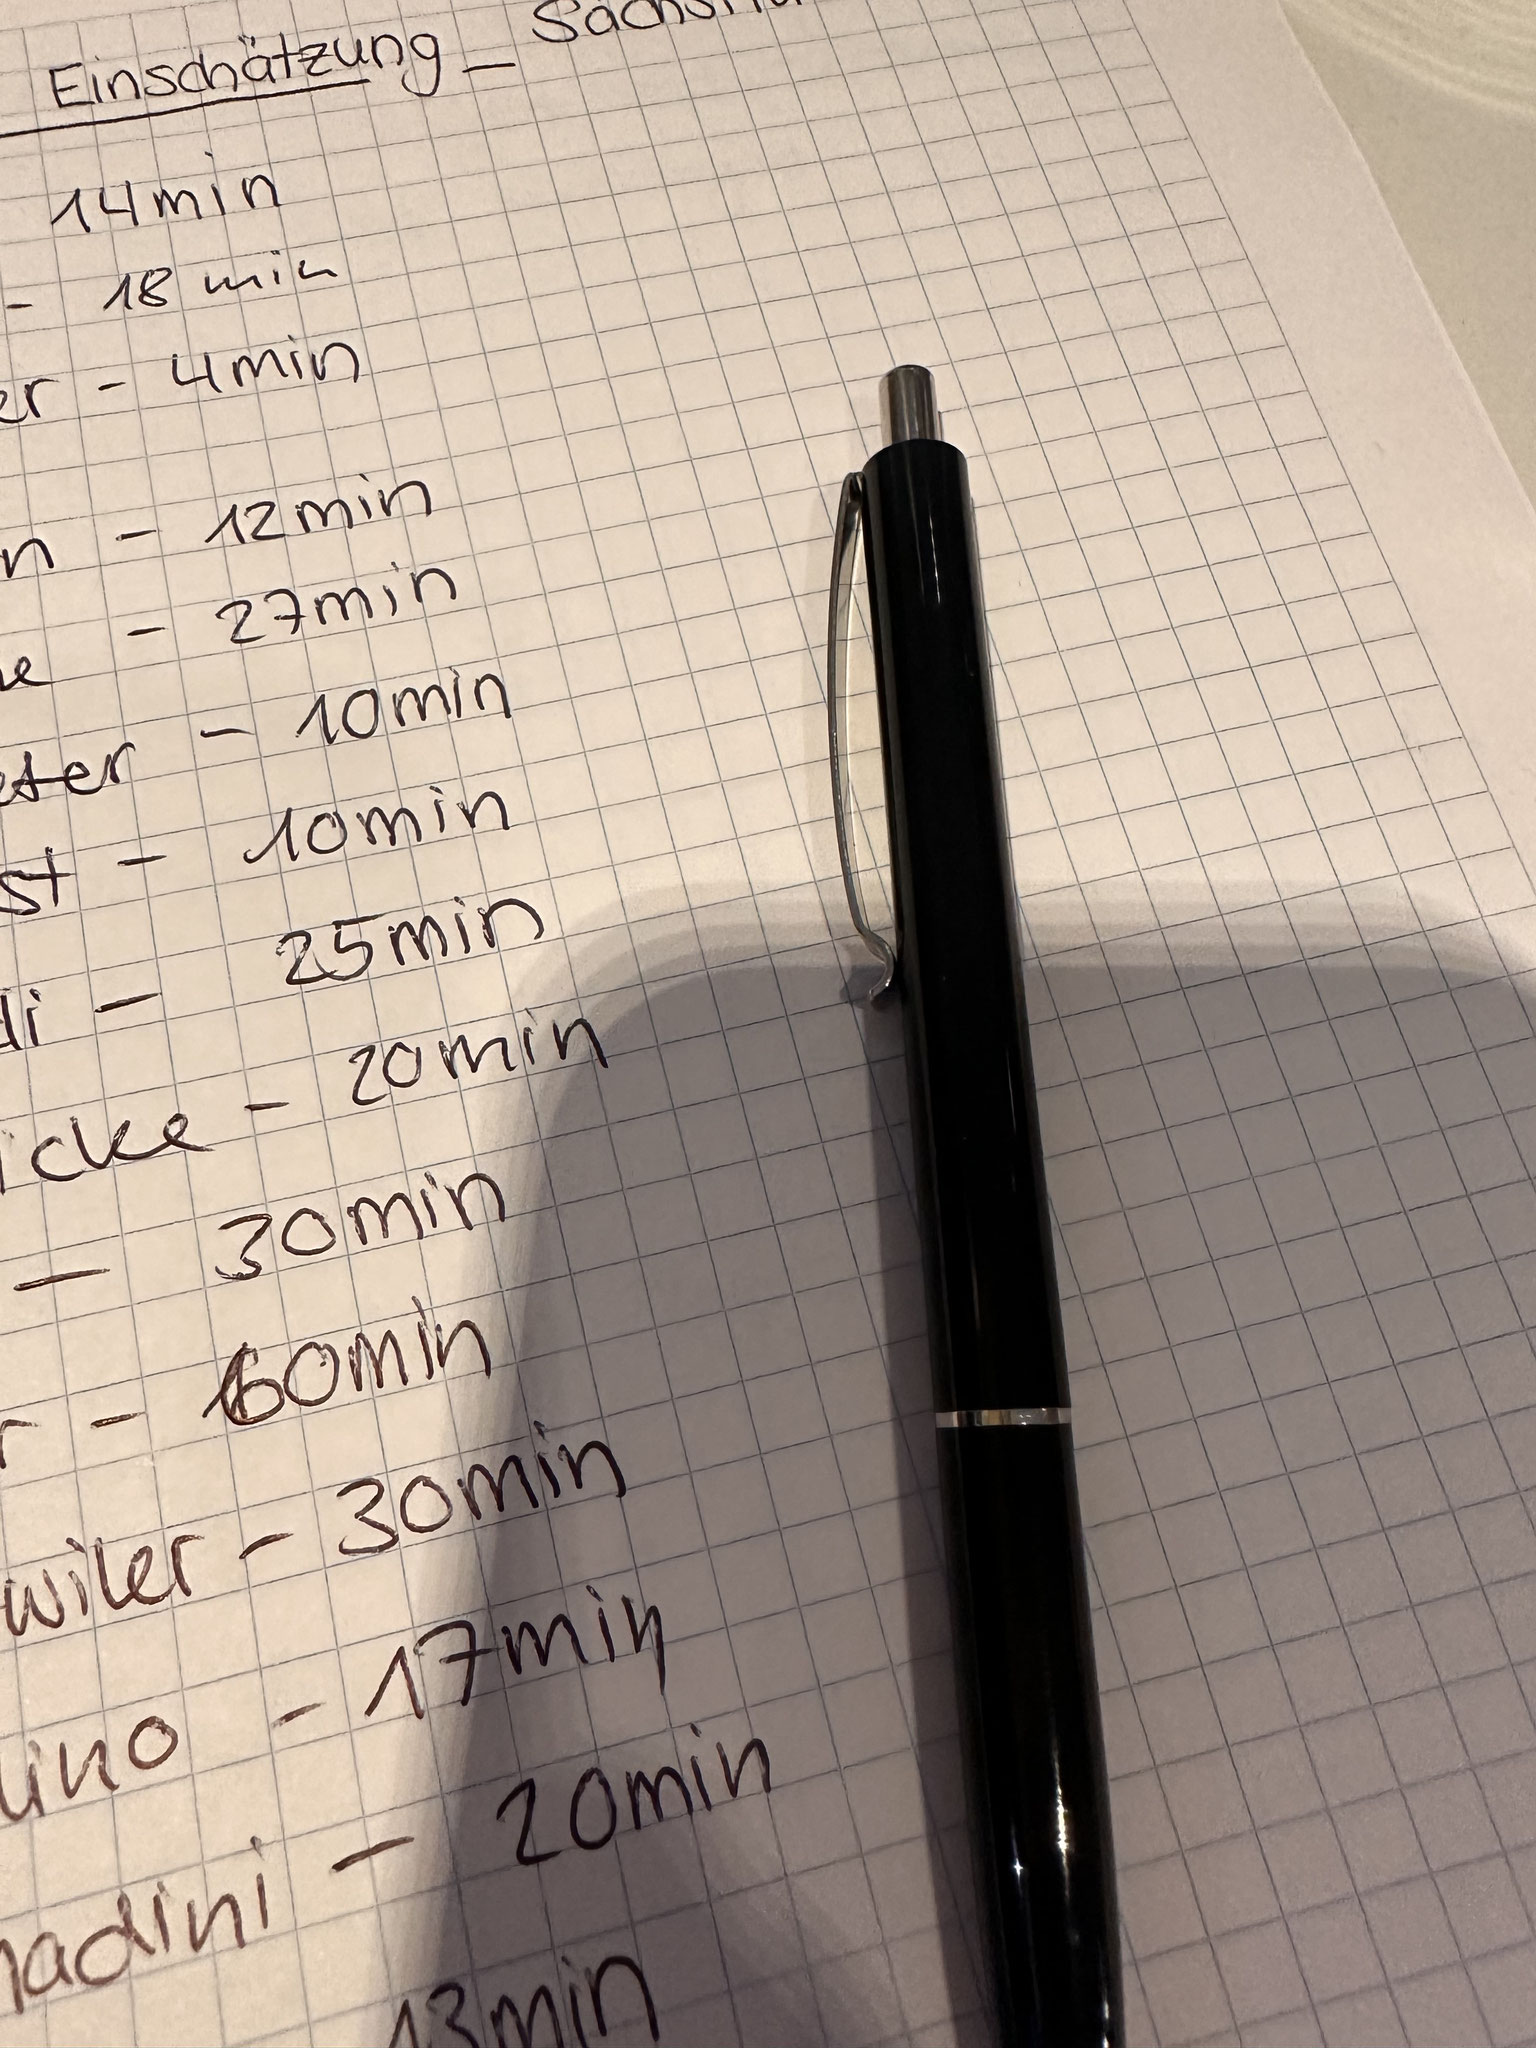 Einschätzung –
14min
- 18 min
er - 4min
n - 12min
e - 27min
eter - 10min
st - 10min
di - 25min
icke - 20min
- 30min
r - 60min
wiler - 30min
lino - 17min
nadini - 20min
13min